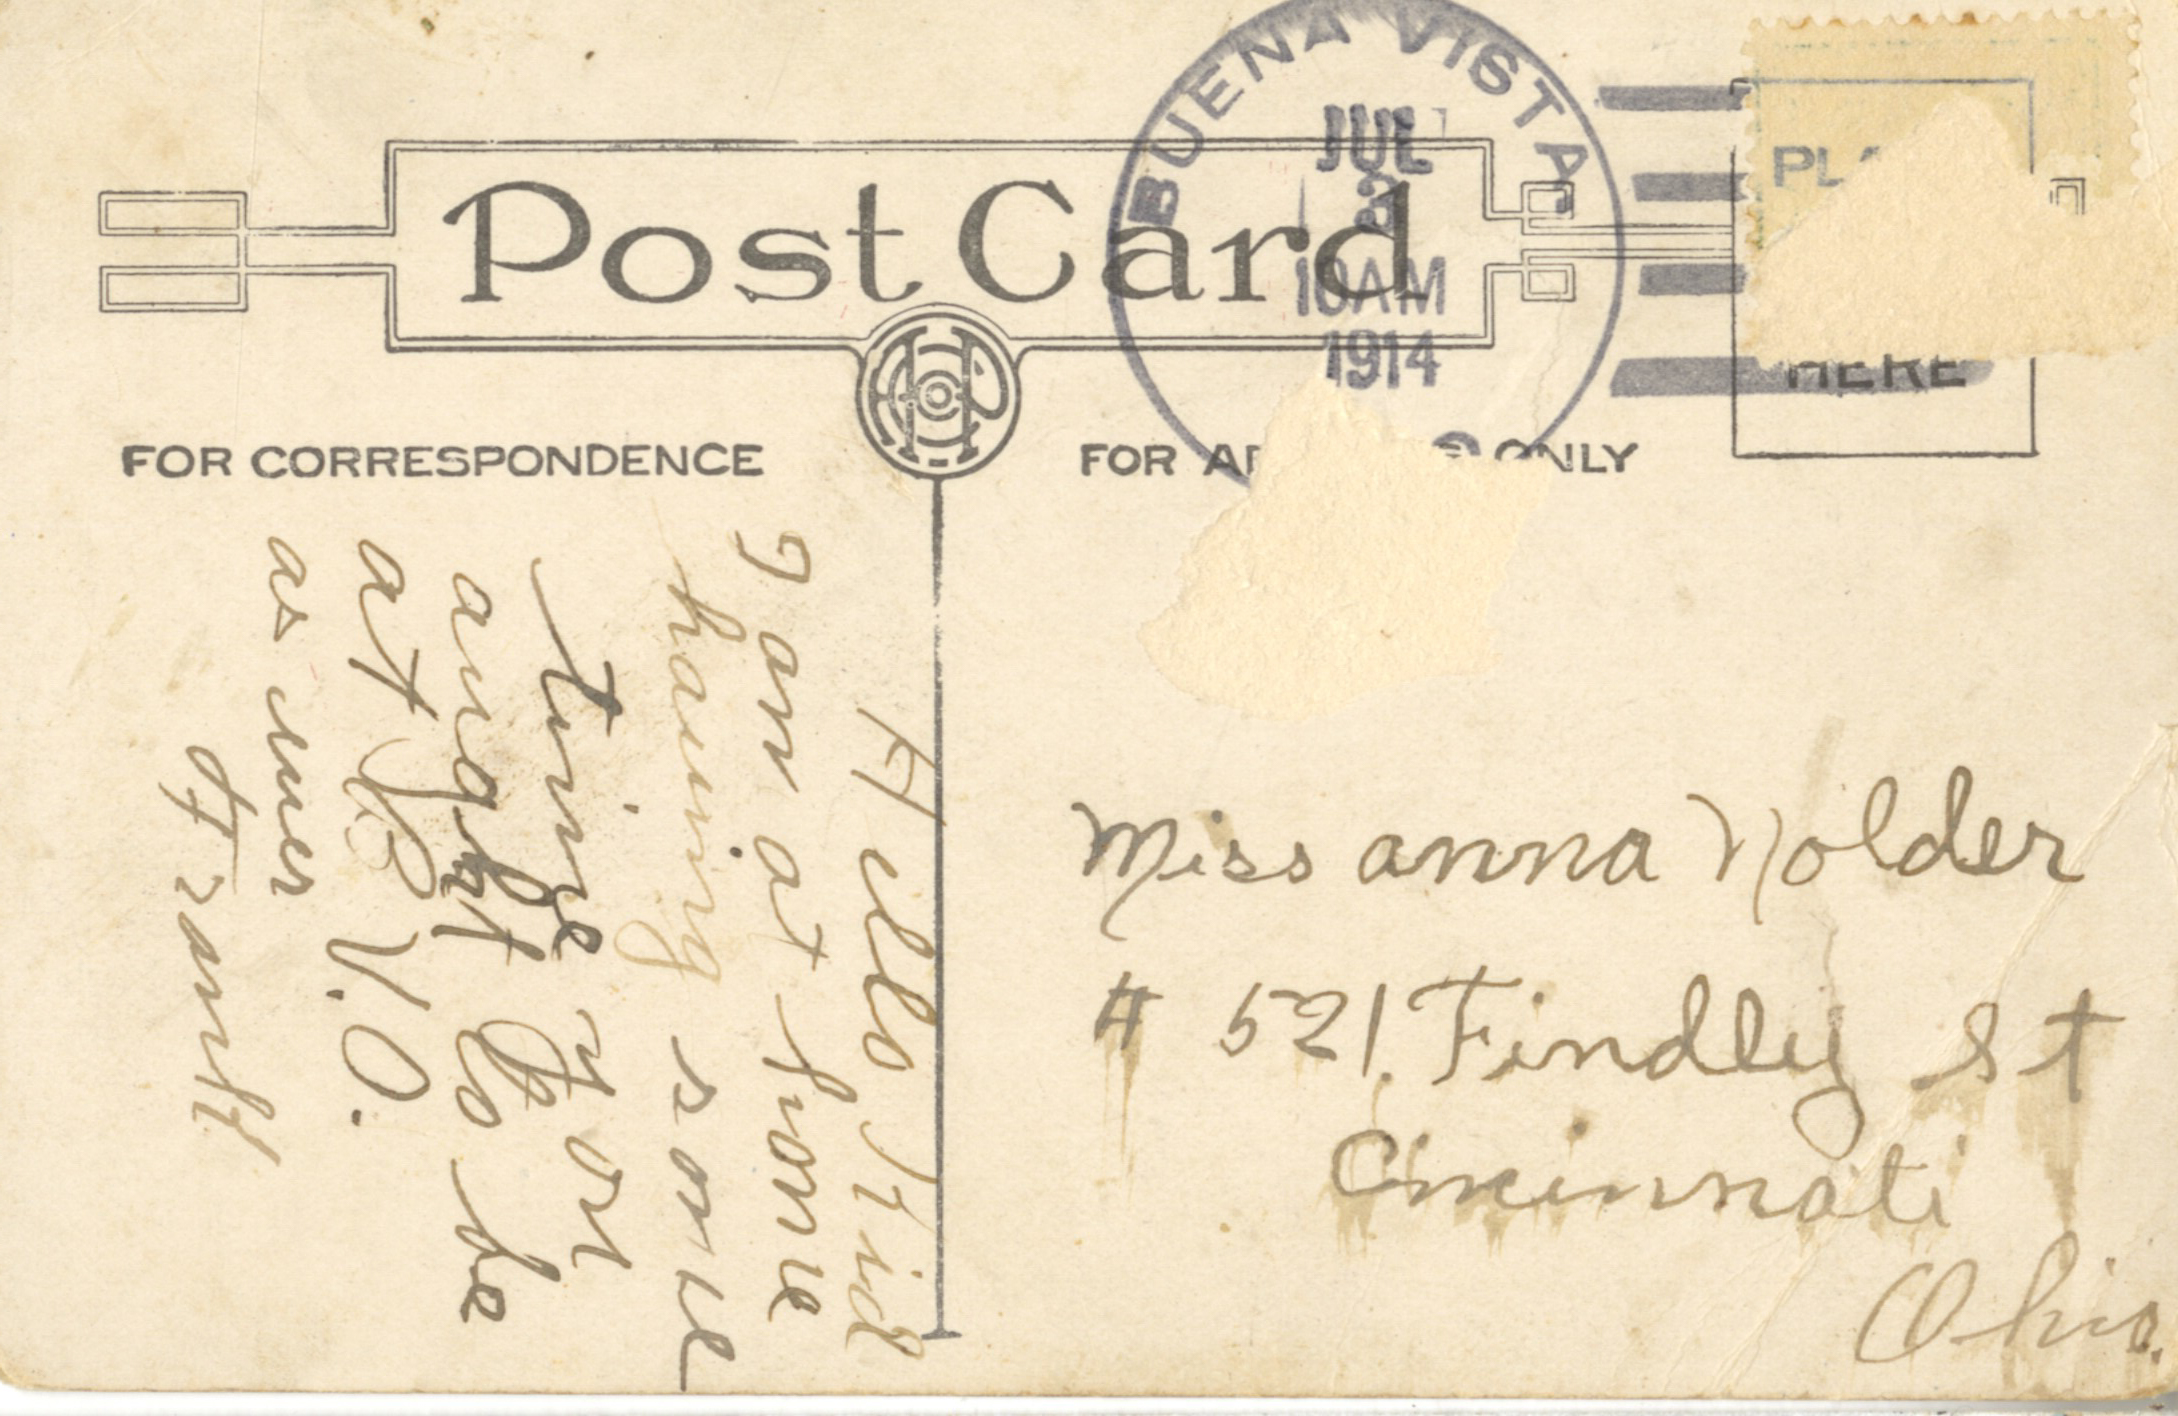 BUENA VISTA
JUL
3
10AM
1914
Post Card
PLA
HERE
FOR CORRESPONDENCE
FOR AD S ONLY
Hello Kid
I am at home
having some
time you
aught to be
at B.V.O.
as ever
Frank
Miss anna Nolder
# 521 Findley St
Cincinnati
Ohio.